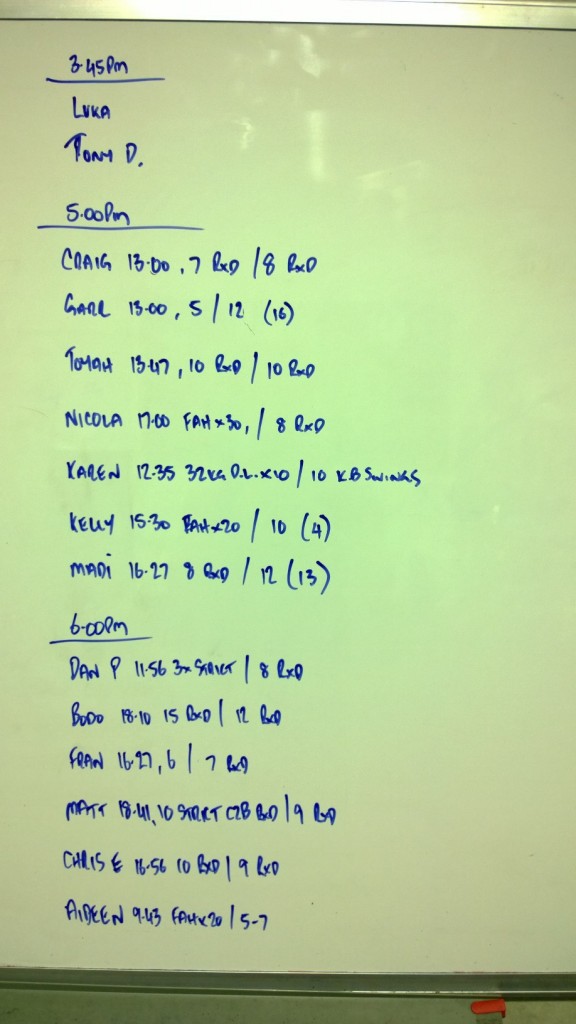 3.45Pm
LUKA
TONY D.
5.00Pm
CRAIG 13.00, 7 RxD / 8 RxD
13.00, 5 / 12 (16)
13.47, 10 RxD / 10 RxD
NICOLA 17.00 FAH x30, / 8 RxD
KAREN 12.35 32KG D.L. x10 / 10 KB SWINGS
KELLY 15.30 FAH x20 / 10 (4)
MADi 16.27 8 RxD / 12 (13)
6.00Pm
DAN P 11.56 3x STRICT / 8 RxD
BODO 18.10 15 RxD / 12 RxD
FRAN 16.27, 6 / 7 RxD
MATT 18.41, 10 C2B RxD / 9 RxD
CHRIS E 16.56 10 RxD / 9 RxD
AIDEEN 9.43 FAH x20 / 5-7